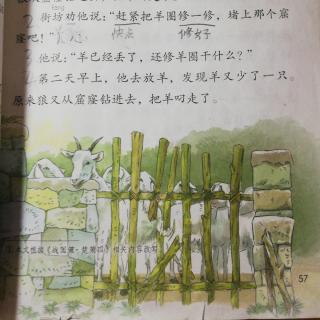 fáng
街坊劝他说：“赶紧把羊圈修一修，堵上那个窟
窿吧！”
快点 修好
他说：“羊已经丢了，还修羊圈干什么？”
第二天早上，他去放羊，发现羊又少了一只。
原来狼又从窟窿钻进去，把羊叼走了。
本文根据《战国策·楚策四》相关内容改写。
57